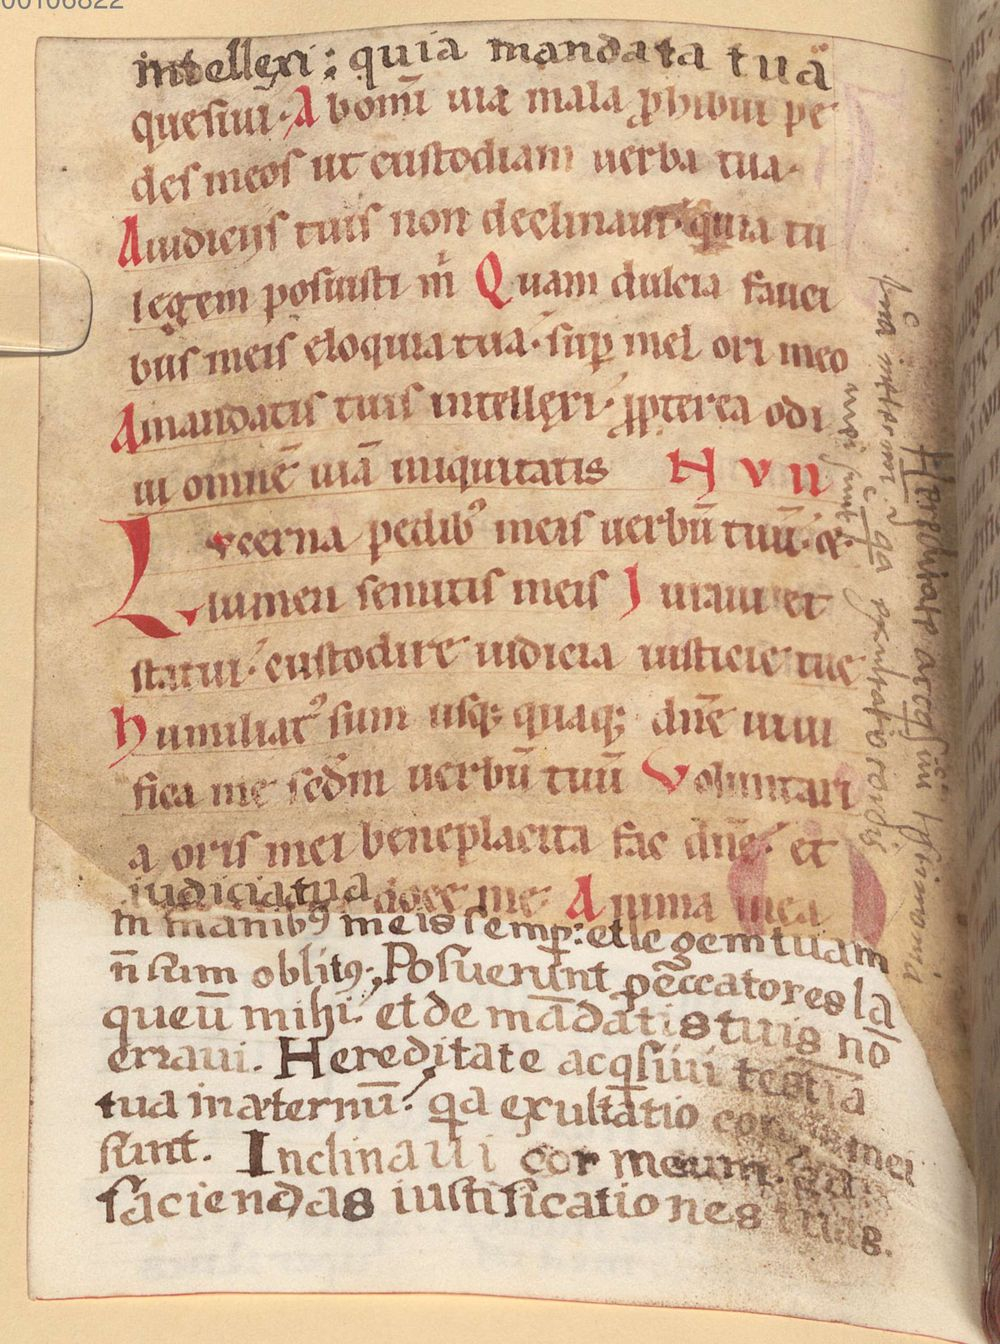 00106822
intellexi; quia mandata tua
quesiui. Ab om̄i uia mala ꝓhibui pe
des meos ut custodiam uerba tua.
A iudiciis tuis non declinaui quia tu
legem posuisti m̄ Quam dulcia fauci
bus meis eloquia tua. suꝑ mel ori meo
A mandatis tuis intellexi. ꝓpterea odi
ui omnē uiā iniquitatis H V N
Lucerna pedib; meis uerbū tuū. &
lumen semitis meis Iuraui et
statui. custodire iudicia iusticie tue
humiliatꝰ sum usq; quaq; dn̄e uiui
fica me scd̄m uerbū tuū Voluntari
a oris mei beneplacita fac dn̄e. et
iudicia tua doce me. Anima mea
in manibꝰ meis semꝑ: et legem tuam
n̄ sum oblitꝰ; Posuerunt peccatores la
queū mihi. et de mādatis tuis nō
erraui. Hereditate acq̄siui testīa
tua in æternū. qa exultatio cor mei
sunt. Inclinaui cor meum. ad
faciendas iustificationes tuas.
Hereditate acq̄siui